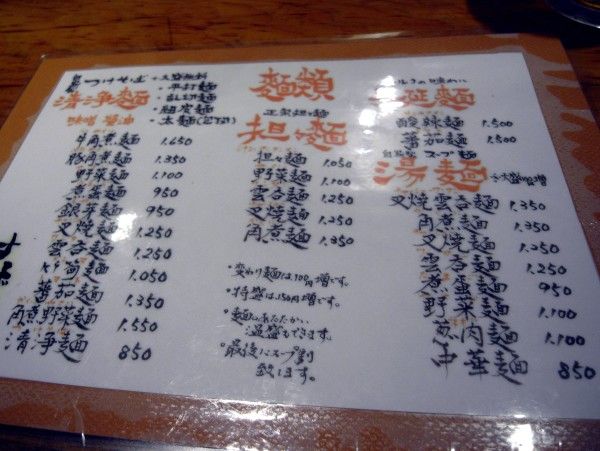 つけそば
清浄麺
味噌 醤油
・平打麺
・太麺
牛角煮麺 1.650
豚角煮麺 1.350
野菜麺 1.100
煮蛋麺 950
銀芽麺 950
叉焼麺 1.250
雲呑麺 1.250
筍麺 1.050
蕃茄麺 1.350
角煮野菜麺 1.550
清浄麺 850
麺類
正宗担々麺
担々麺
担々麺 1.050
野菜麺 1.100
雲呑麺 1.250
叉焼麺 1.250
角煮麺 1.350
・変わり麺は100円増です。
・特盛は150円増です。
・麺のあたたかい、
温盛もできます。
・最後にスープ割
致します。
延麺
酸辣麺 1.500
蕃茄麺 1.500
スープ麺
湯麺
叉焼雲呑麺 1.350
角煮麺 1.350
叉焼麺 1.250
雲呑麺 1.250
煮蛋麺 950
野菜麺 1.100
葱肉麺 1.100
中華麺 850